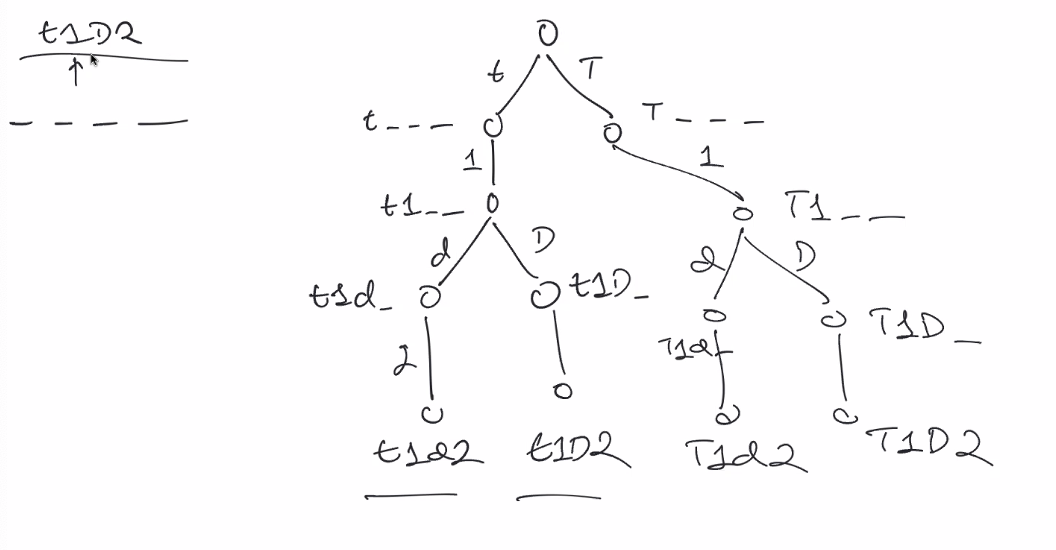 t1D2
t T
t _ _ _ T _ _ _
1 1
t1 _ _ T1 _ _
d D d D
t1d _ t1D _ T1d _ T1D _
2
t1d2 t1D2 T1d2 T1D2